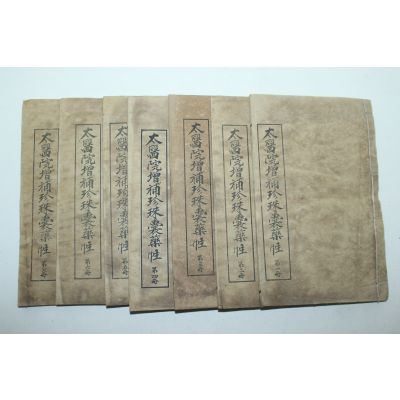 太醫院增補珍珠囊藥性
太醫院增補珍珠囊藥性
太醫院增補珍珠囊藥性
太醫院增補珍珠囊藥性 第四冊
太醫院增補珍珠囊藥性 第三冊
太醫院增補珍珠囊藥性 第二冊
太醫院增補珍珠囊藥性 第一冊